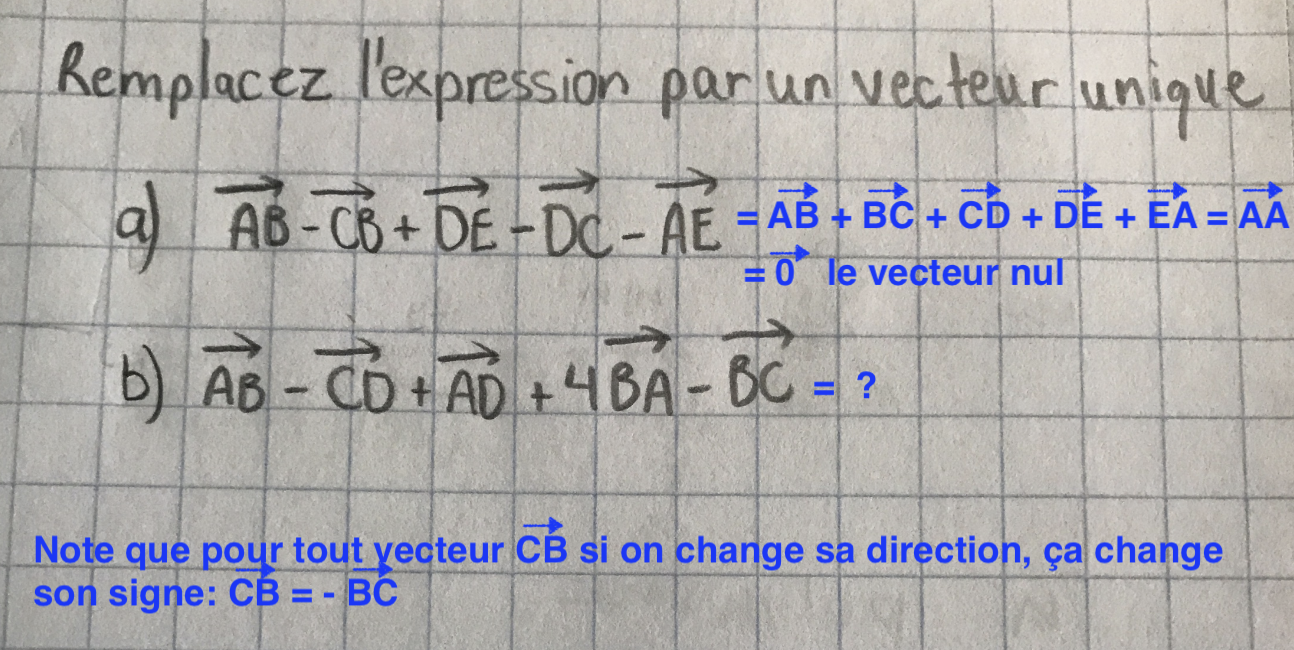 Remplacez l'expression par un vecteur unique
a) AB - CB + DE - DC - AE = AB + BC + CD + DE + EA = AA
= 0 le vecteur nul
b) AB - CD + AD + 4BA - BC = ?
Note que pour tout vecteur CB si on change sa direction, ça change
son signe: CB = - BC